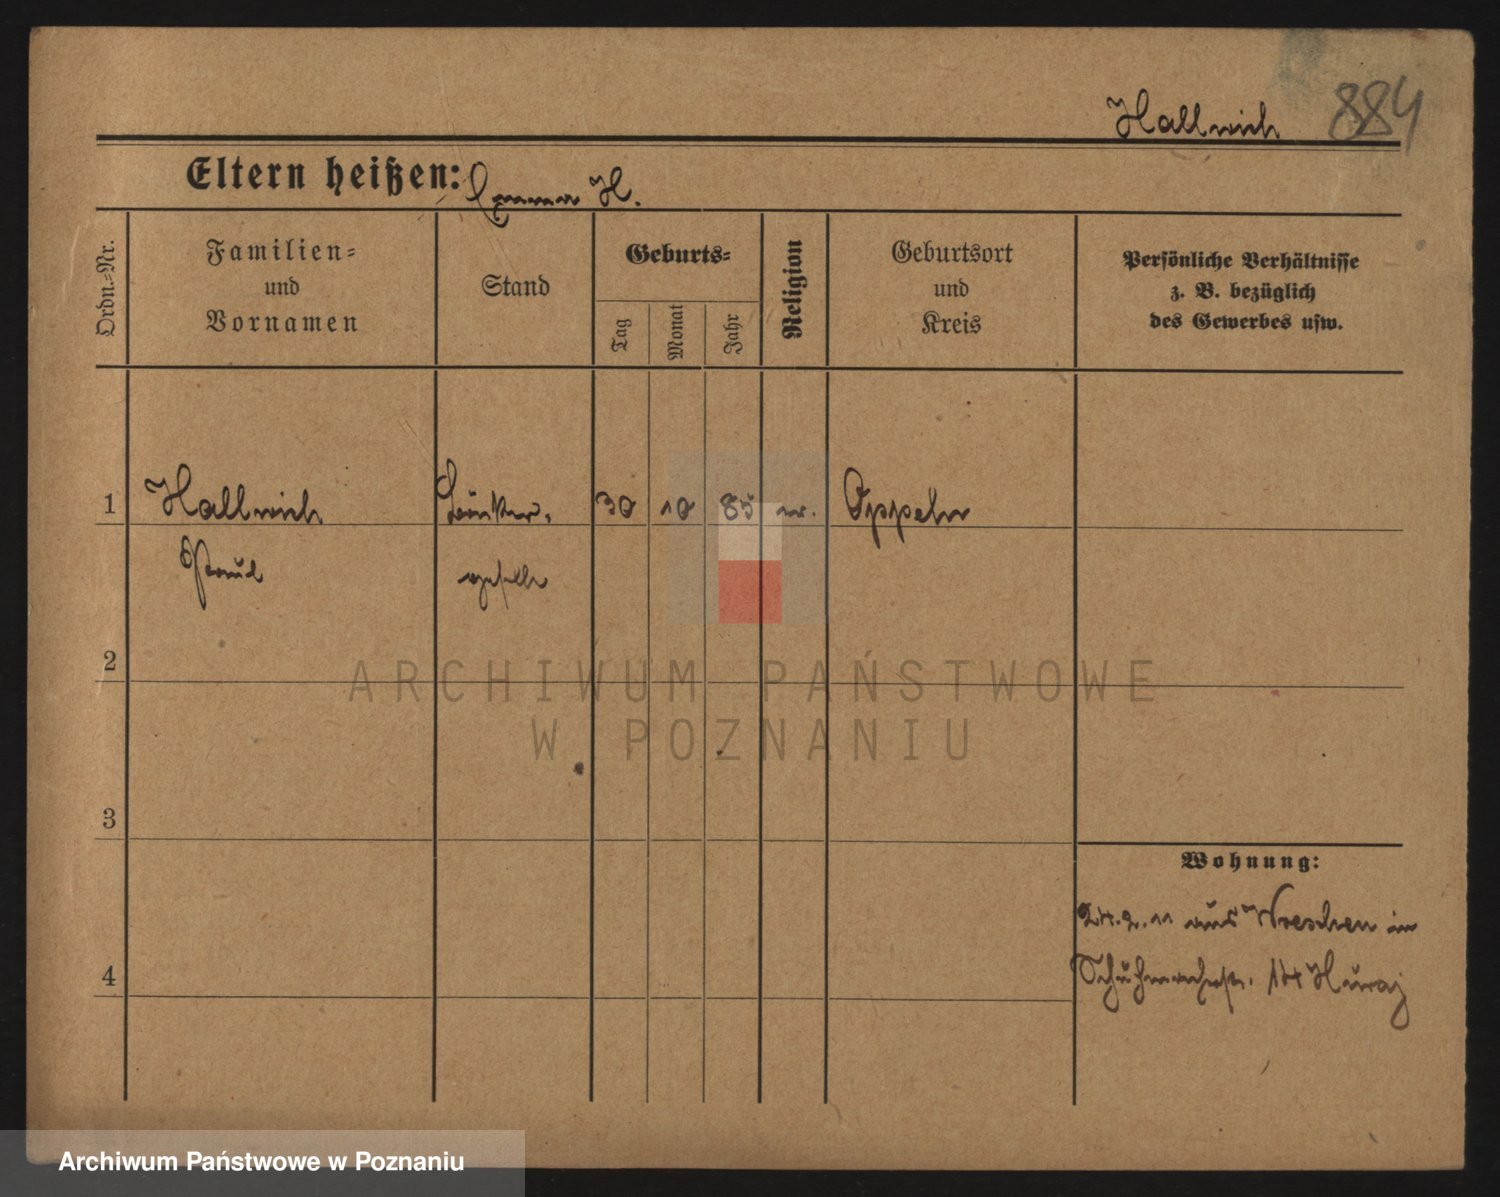 Hallwich 884
Eltern heißen: Emma H.
Ordn.=Nr.
Familien=
und
Vornamen
Stand
Geburts=
Tag
Monat
Jahr
Religion
Geburtsort
und
Kreis
Persönliche Verhältnisse
z. B. bezüglich
des Gewerbes usw.
1 Hallwich Bäcker= 30 10 85 Oppeln
Paul geselle
2
3
4
Wohnung:
24.2.11 aus Wreschen in
Schuhmacherstr. 14 Huraj
ARCHIWUM PAŃSTWOWE
W POZNANIU
Archiwum Państwowe w Poznaniu